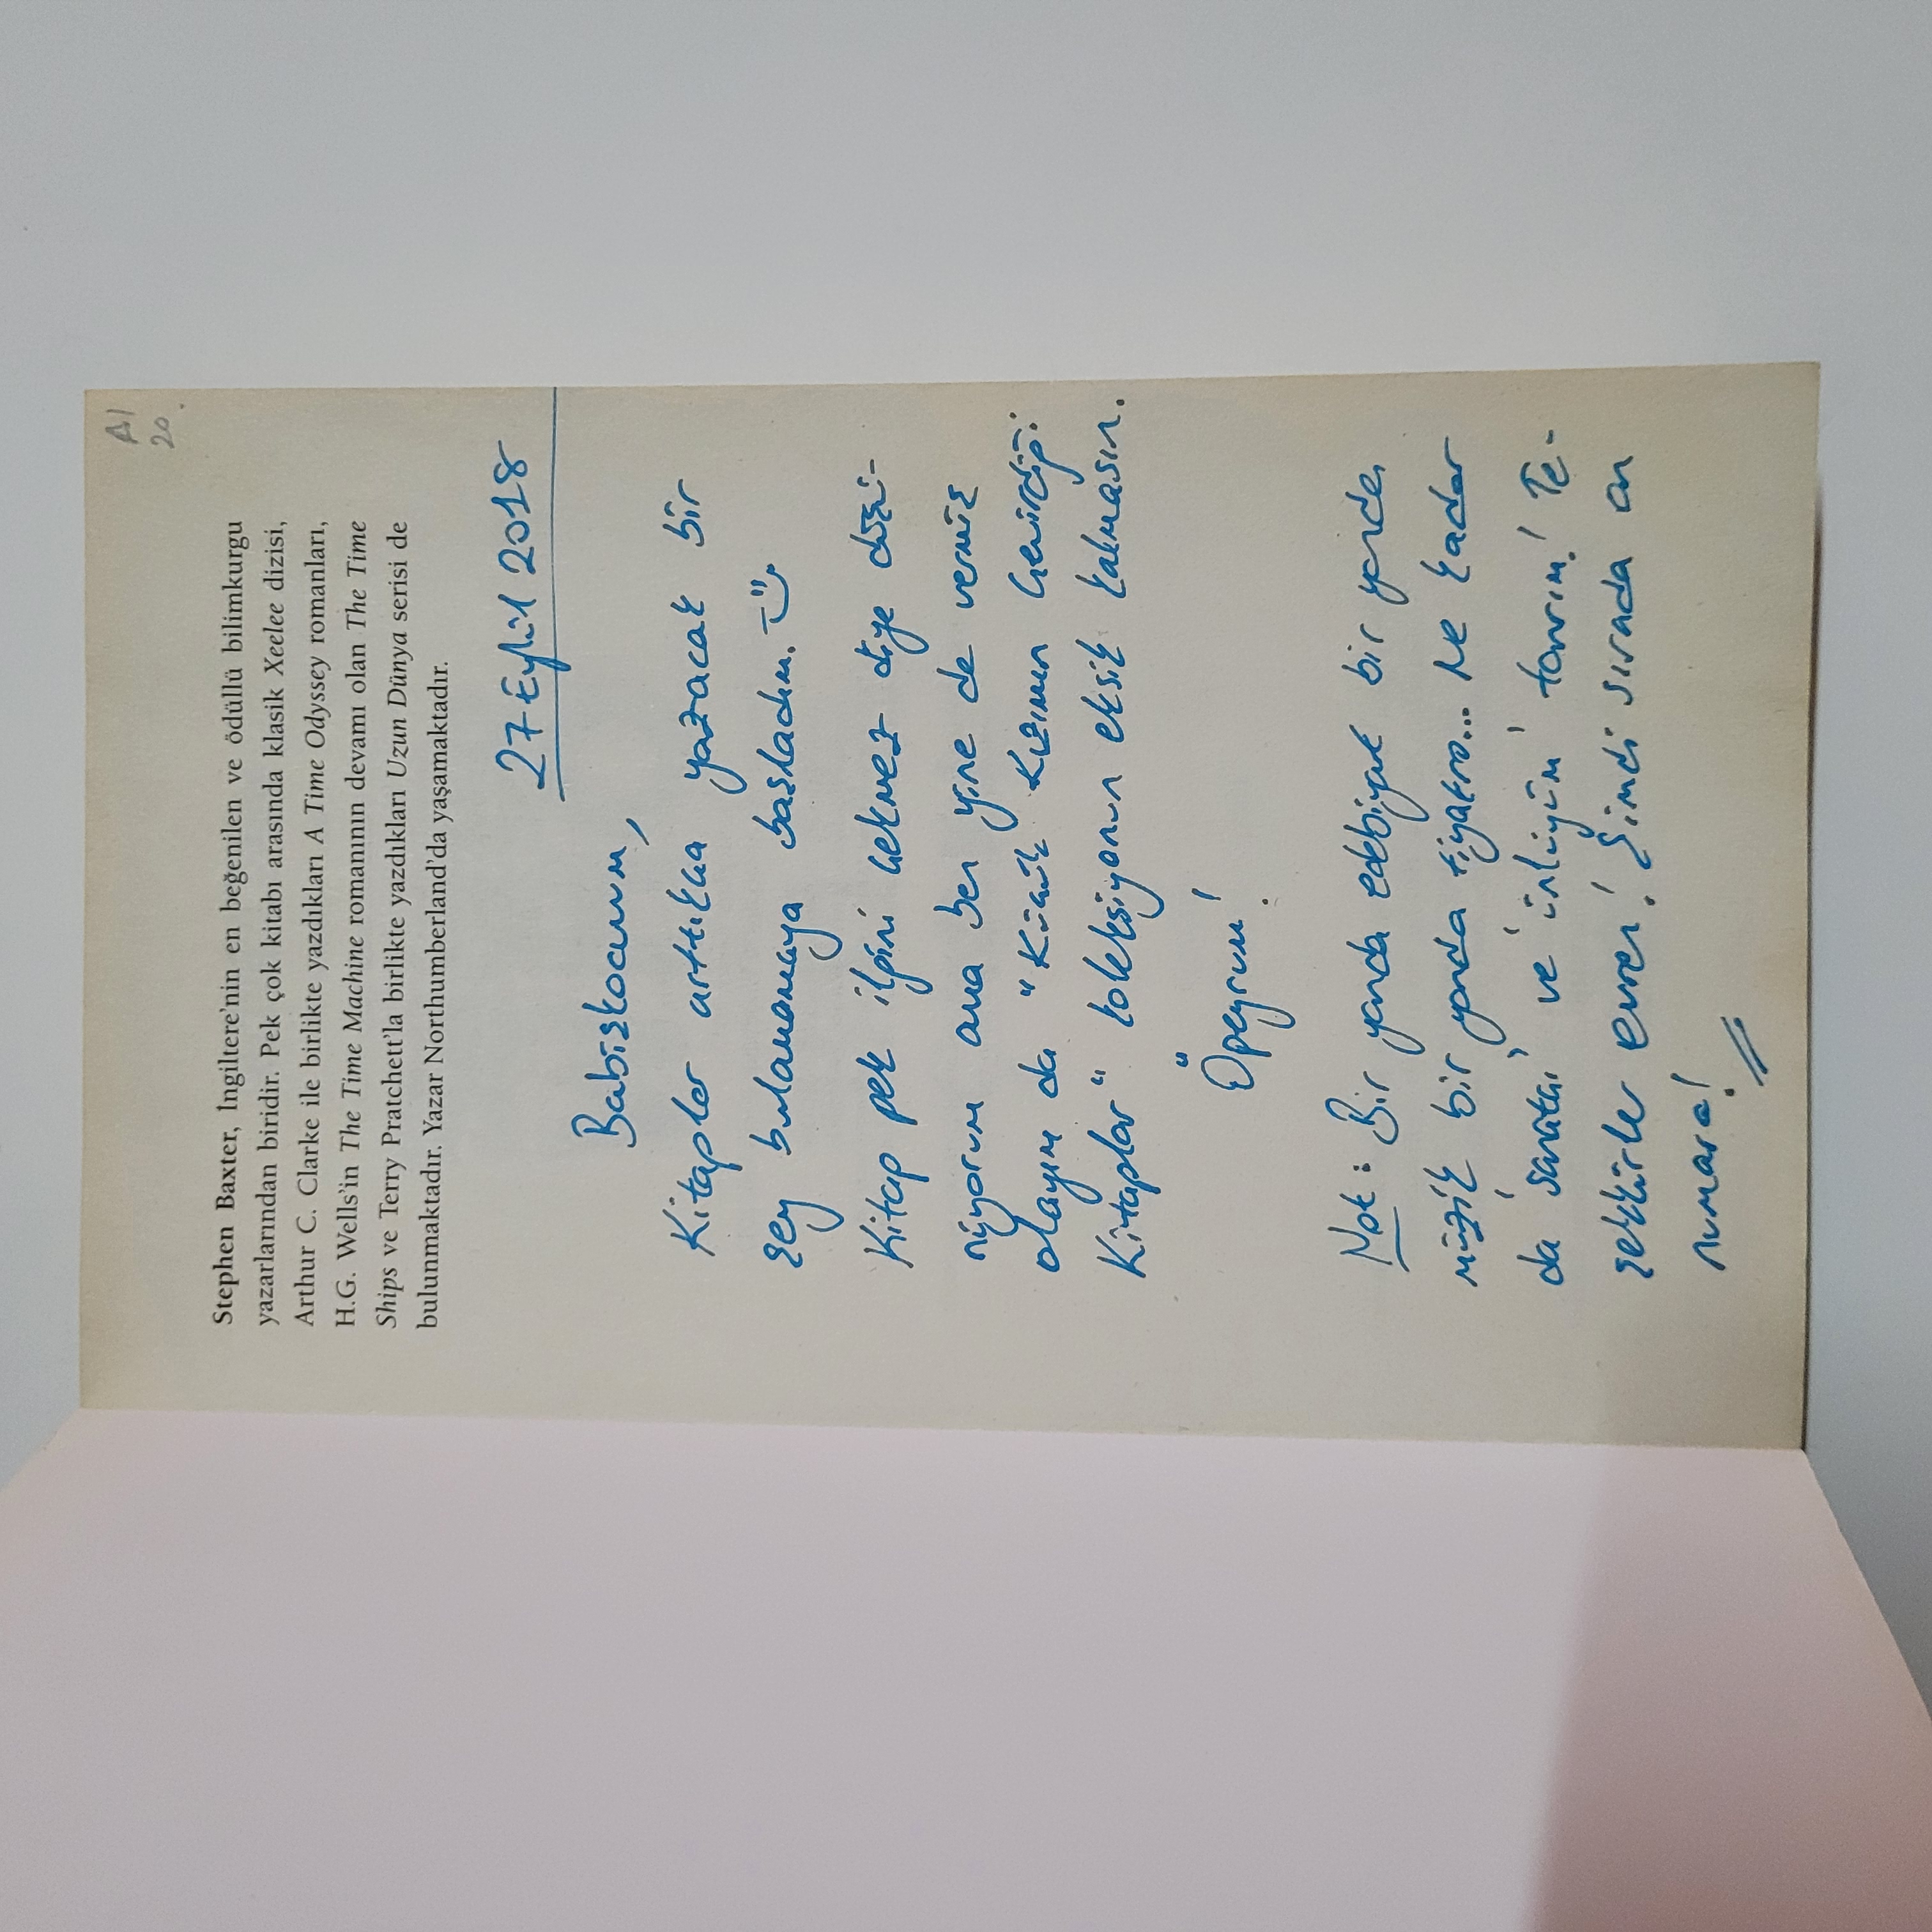 Al
20
Stephen Baxter, İngiltere'nin en beğenilen ve ödüllü bilimkurgu
yazarlarından biridir. Pek çok kitabı arasında klasik Xeelee dizisi,
Arthur C. Clarke ile birlikte yazdıkları A Time Odyssey romanları,
H.G. Wells'in The Time Machine romanının devamı olan The Time
Ships ve Terry Pratchett'la birlikte yazdıkları Uzun Dünya serisi de
bulunmaktadır. Yazar Northumberland'da yaşamaktadır.
27 Eylül 2018
Babişkocum,
Kitaplar arttıkça yazacak bir
şey bulamamaya başladım.
Kitap pek ilgini çekmez diye düşü-
nüyorum ama ben yine de vermiş
olayım da "Küçük Kızımın Çevirdiği
Kitaplar" koleksiyonun eksik kalmasın.
Öpüyorum!
Not: Bir yanda edebiyat bir yanda
müzik bir yanda tiyatro... Ne kadar
da 'sanatçı' ve 'ünlüyüm' tanrım! Te-
şekkürler evren! Şimdi sırada on
numara!